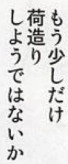 もう少しだけ
荷造り
しようではないか